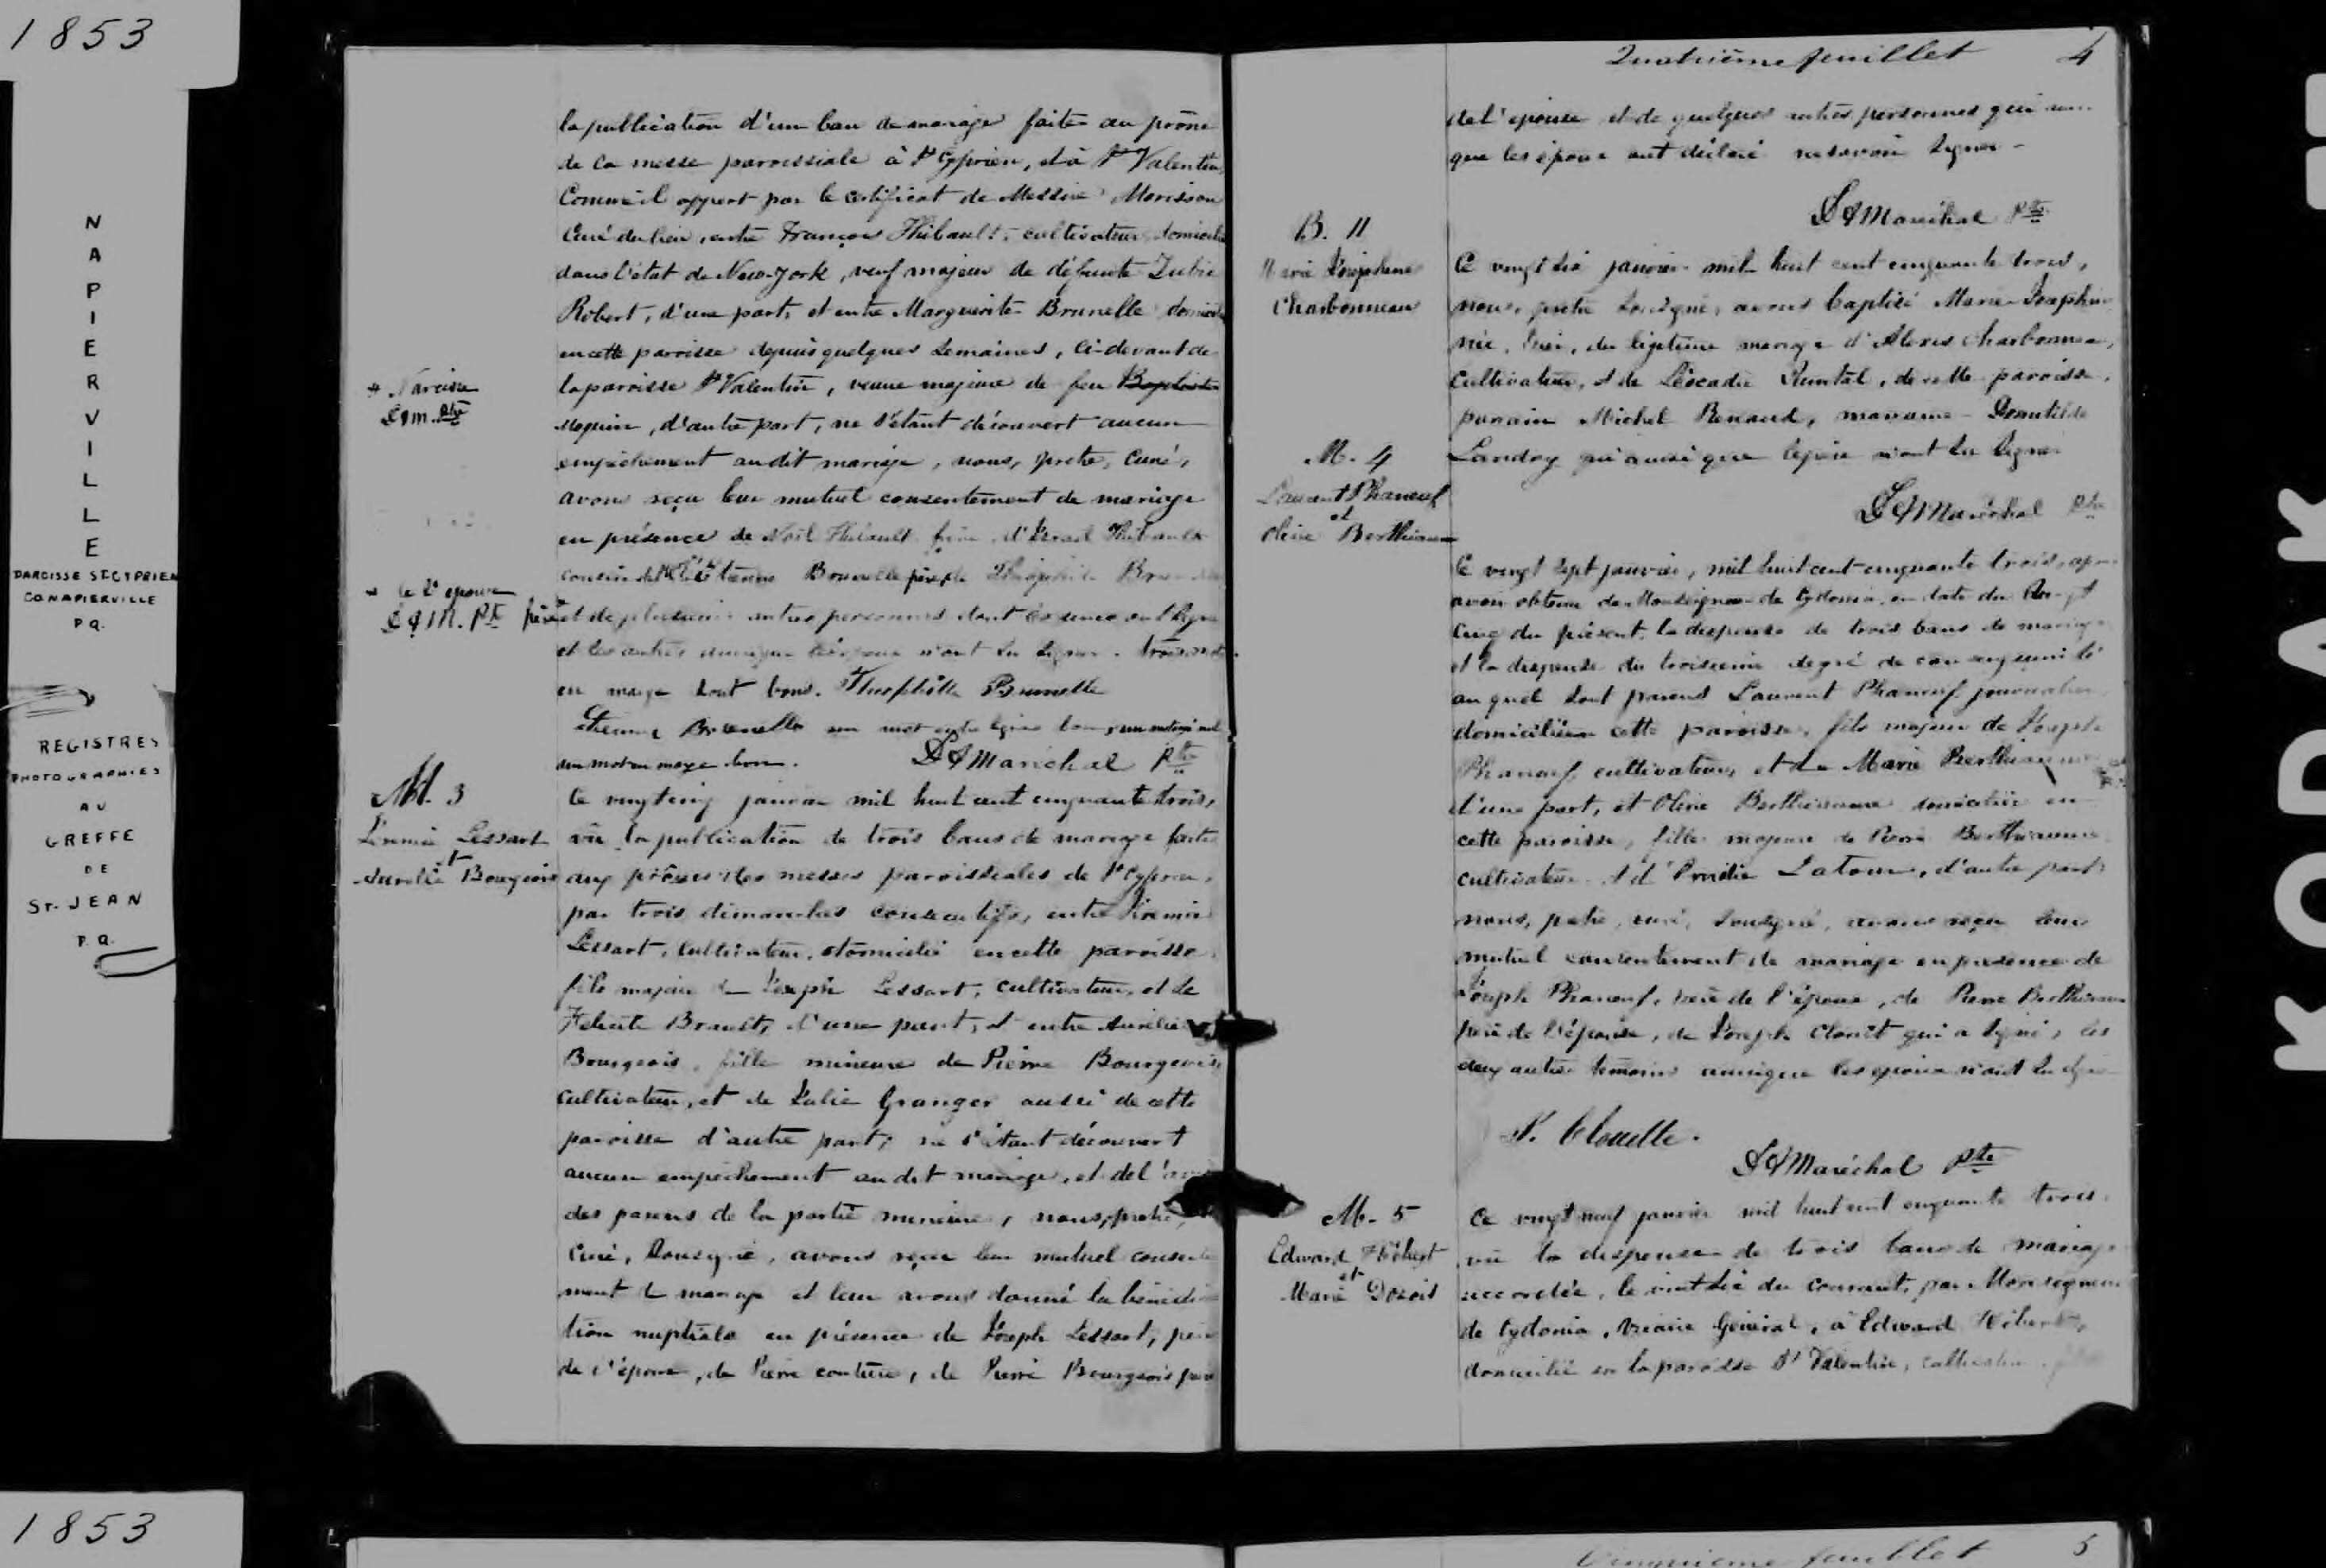 1853
NAPIERVILLE
PAROISSE ST-CYPRIEN
CO NAPIERVILLE
P Q.
REGISTRES
PHOTOGRAPHIES
AU
GREFFE
DE
ST. JEAN
P. Q.
1853
la publication d'un ban de mariage faite au prône
de la messe paroissiale à St Cyprien, et à St Valentin,
Comme il appert par le certificat de Messire Morisson
Curé du lieu, entre François Thibault, cultivateur domicilié
dans l'état de New-York, veuf majeur de défunte
Robert, d'une part, et entre Marguerite Brunelle domiciliée
en cette paroisse depuis quelques semaines, ci-devant de
la paroisse St Valentin, veuve majeure de feu Baptiste
# Narcisse
L A M. Ptre
, d'autre part, ne s'étant découvert aucun
empêchement au dit mariage, nous, prêtre, curé,
avons reçu leur mutuel consentement de mariage
en présence de Noël Thibault frère, d'Israel Thibault
cousin Etienne Brunelle Théophile
le 2d époux
L A M. Ptre
et de plusieurs autres personnes dont les uns ont signé
et les autres ainsi que les époux n'ont su signer.
en marge sont bons. Theophille Brunelle
Etienne Brunelle un mot entre lignes bon,
un mot en marge bon. L A Maréchal Ptre
M. 3
Lessart
et
Aurélie Bourgeois
Ce vingt cinq janvier mil huit cent cinquante trois,
vu la publication de trois bans de mariage faite
aux prônes des messes paroissiales de St Cyprien,
par trois dimanches consécutifs, entre
Lessart, cultivateur, domicilié en cette paroisse,
fils majeur de Joseph Lessart, cultivateur, et de
Felicité d'une part, et entre Aurélie
Bourgeois, fille mineure de Pierre Bourgeois,
cultivateur, et de Julie Granger aussi de cette
paroisse d'autre part; ne s'étant découvert
aucun empêchement au dit mariage, et de l'avis
des parens de la partie mineure, nous, prêtre,
Curé, soussigné, avons reçu leur mutuel consente
ment de mariage et leur avons donné la bénédic
tion nuptiale en présence de Joseph Lessart, père
de l'époux, de Pierre couture, de Pierre Bourgeois père
Quatrième feuillet 4
de l'épouse et de quelques autres personnes qui
que les époux ont déclaré ne savoir signer -
L A Maréchal Ptre
B. 11
Marie Josephine
Charbonneau
Ce vingt six janvier mil huit cent cinquante trois,
nous, prêtre soussigné, avons baptisé Marie-Josephine
née, hier, du légitime mariage d'Alexis Charbonneau,
cultivateur, et de Léocadie de cette paroisse.
parrain Michel Renaud, marraine Domitilde
Landry qui ainsi que le père n'ont su signer
L A Maréchal Ptre
M. 4
Laurent Phaneuf
et
Olive Berthiaume
Ce vingt sept janvier, mil huit cent cinquante trois, après
avoir obtenu de Monseigneur de Cydonia, en date du vingt
cinq du présent, la dispense de trois bans de mariage
et la dispense du troisième degré de consanguinité
au quel sont parens Laurent Phaneuf journalier,
domicilié en cette paroisse, fils majeur de Joseph
Phaneuf cultivateur, et de Marie Berthiaume
d'une part, et Olive Berthiaume domiciliée en
cette paroisse, fille majeure de Pierre Berthiaume
cultivateur et d' Latour, d'autre part,
nous, prêtre, curé, soussigné, avons reçu leur
mutuel consentement de mariage en présence de
Joseph Phaneuf, père de l'époux, de Pierre Berthiaume
père de l'épouse, de Joseph qui a signé, les
deux autres témoins ainsi que les époux n'ont su signer
J. Clouette.
L A Maréchal Ptre
M. 5
Edward Hébert
et
Marie Dozois
Ce vingt neuf janvier mil huit cent cinquante trois
vu la dispense de trois bans de mariage
accordée, le vint six du courant, par Monseigneur
de Cydonia, Vicaire Général, à Edward Hébert,
domicilié en la paroisse St Valentin, cultivateur,
Cinquième feuillet 5
KODAK